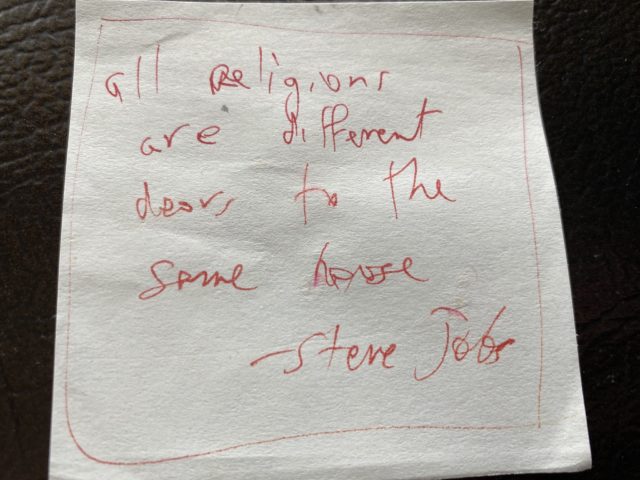 all Religions
are different
doors to the
same house
-Steve Jobs